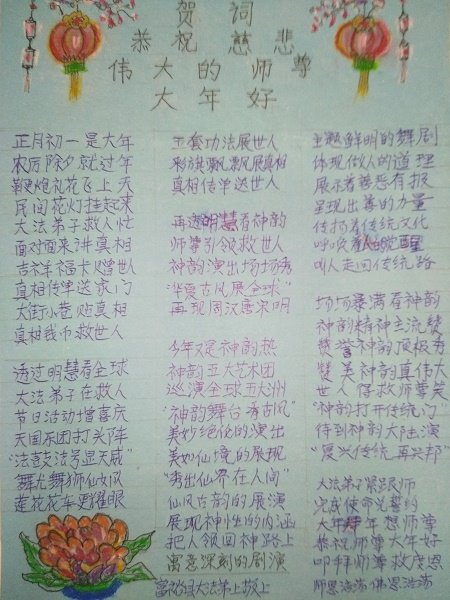 贺词
恭祝慈悲
伟大的师尊
大年好
正月初一是大年
农历除夕就过年
鞭炮礼花飞上天
民间花灯挂起来
大法弟子救人忙
面对面来讲真相
吉祥福卡救世人
真相传单送家门
大街小巷贴真相
真相钱币救世人
透过明慧看全球
大法弟子在救人
节日活动增喜庆
天国乐团打头阵
"法鼓法号显天威"
舞龙舞狮仙女风
莲花花车更耀眼
五套功法展世人
彩旗飘飘展真相
真相传单送世人
再透明慧看神韵
师尊引领救世人
神韵演出场场秀
"华夏古风展全球"
再现周汉唐宋明
今年又是神韵热
神韵五大艺术团
巡演全球五大洲
"神韵舞台有古风"
美妙绝伦的演出
美如仙境的展现
"秀出仙界在人间"
仙风古韵的展演
展现神性的内涵
把人领回神路上
寓意深刻的剧演
富裕县大法弟子敬上
主题鲜明的舞剧
体现做人的道理
展示着善恶有报
呈现出善的力量
传扬着传统文化
呼唤着人的觉醒
叫人走回传统路
场场暴满看神韵
神韵精神主流赞
赞誉神韵顶极秀
赞美神韵真伟大
世人得救师尊笑
"神韵打开传统门
待到神韵大陆演
"复兴传统再兴邦"
大法弟子紧跟师
完成使命兑誓约
大年年想师尊
恭祝师尊大年好
叩拜师尊救度恩
师恩浩荡佛恩浩荡